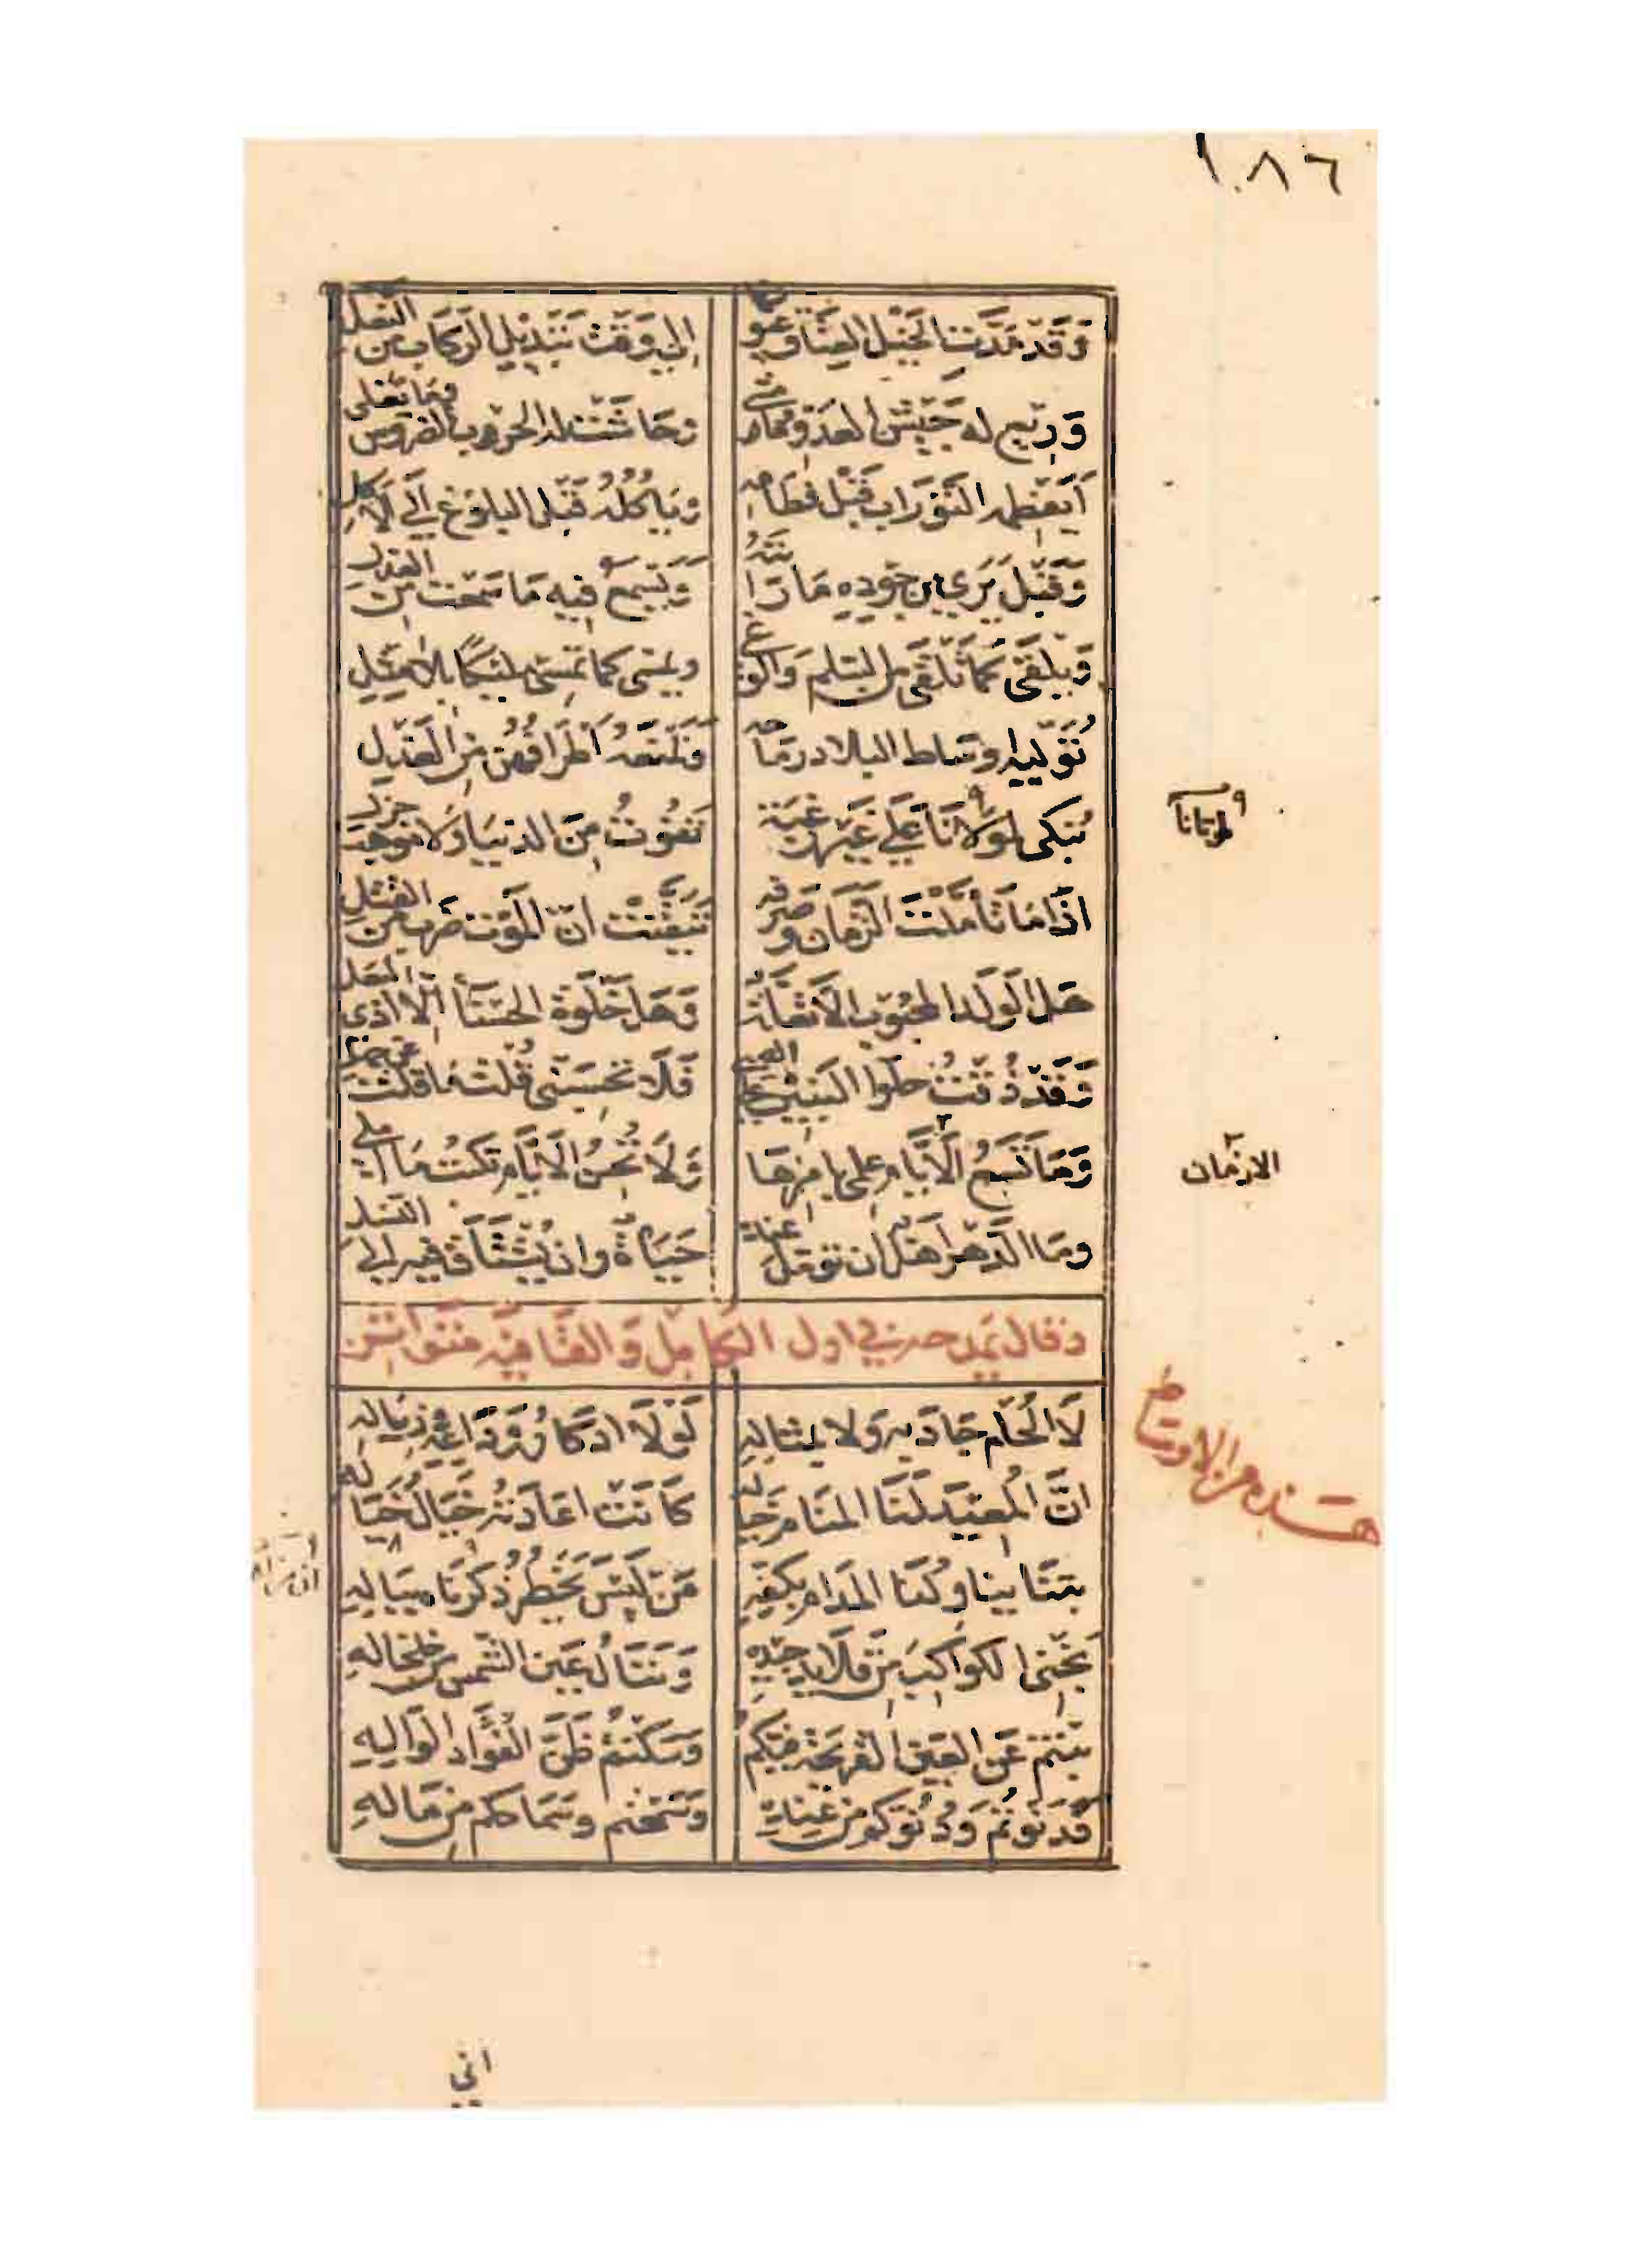 ١٠٨٦
وَقَدْ مَدَّتِ الخَيْلُ العِتَاقُ عيونها إلى وَقْتِ تَبْدِيْلِ الرِّكَابِ مِنَ النعل
وَرِيعَ له جَيْشُ العدوّ وَمَا مشى وَجَاشَتْ له الحرْبُ الضروس وما تغلى
أَيَفْطِمهُ التَّوْرَابُ قَبْلَ فِطَامِهِ وَيَأْكُلُهُ قَبْلَ البلوغِ الى الاكل
وَقَبْلَ يَرَى من جُودِهِ مَا رَأَيْتَهُ وَيَسْمَعُ فيه مَا سَمِعْتَ مِنَ العذل
وَيَلْقَى كَمَا تَلْقَى من السلمِ وَالوغى ويمسى كما تمسى مليكًا بلا مِثْلِ
تُوَلِّيهِ اوساط البلاد رِمَاحُهُ وَتَمْنَعُهُ أَطْرَافُهُنَّ مِنَ العَزْلِ
نُبَكِّى لموْتَانَا عَلَى غَيْرِ رغبة تَفُوتُ مِنَ الدنيا وَلا موهب جزل
لموتانا
اذَا مَا تَأَمَّلْتَ الزمان وصرفه تَيَقَّنْتَ انّ المَوْتَ ضرب من القتل
هَلِ الوَلَدُ المحبُوبُ الا تَعِلَّةٌ وَهَلْ خَلْوَةُ الحَسْنَا إلّا اذى البعل
وَقَدْ ذُقْتُ حلْوا البَنِيْنَ على الصبى فَلَا تَحْسَبَنِّى قُلْتُ مَا قلت عن جهل
وَمَا تَسَعُ الأيَّام علمى بامرها وَلَا تُحْسِنُ الايّام تَكْتُبُ مَا املى
الازمان
ومَا الدّهر اهل ان تؤمل عنده حَيَاةٌ وان يُشْتَاقَ فيه الى النسل
وقال يَمدحه في اول الكَامِلِ وَالقَافِيَة متواتر
لَا الحُلْمُ جَادَ بِهِ وَلا بمثاله لَوْلَا ادكارُ وَدَاعِهِ وَزِيَالِهِ
هذه من الاوسط
انَّ المُعِيْدَ لَنَا المنَامُ خياله كَانَتْ اعَادَتُهُ خَيَالَ خَيَاله
بِتْنَا يناولُنَا المدَامَ بِكَفِّهِ مَنْ لَيْسَ يَخْطُرُ ذكْرنَا بِبَالِهِ
نَجْنِى الكواكِبَ مِنْ قَلَائِدِ جِيْدِهِ وَنَنَالُ عَيْنَ الشمس من خلخاله
بِنْتُمْ عَنِ العَيْنِ القريحَةِ فيكُمُ وَسَكَنْتُمُ ظَنَّ الفُؤَادِ الوَالِهِ
فَدَنَوْتُمْ وَدُنُوّكم من عِنْدِهِ وَسَمَحْتُم وسَمَاحكم من مَالِهِ
انى